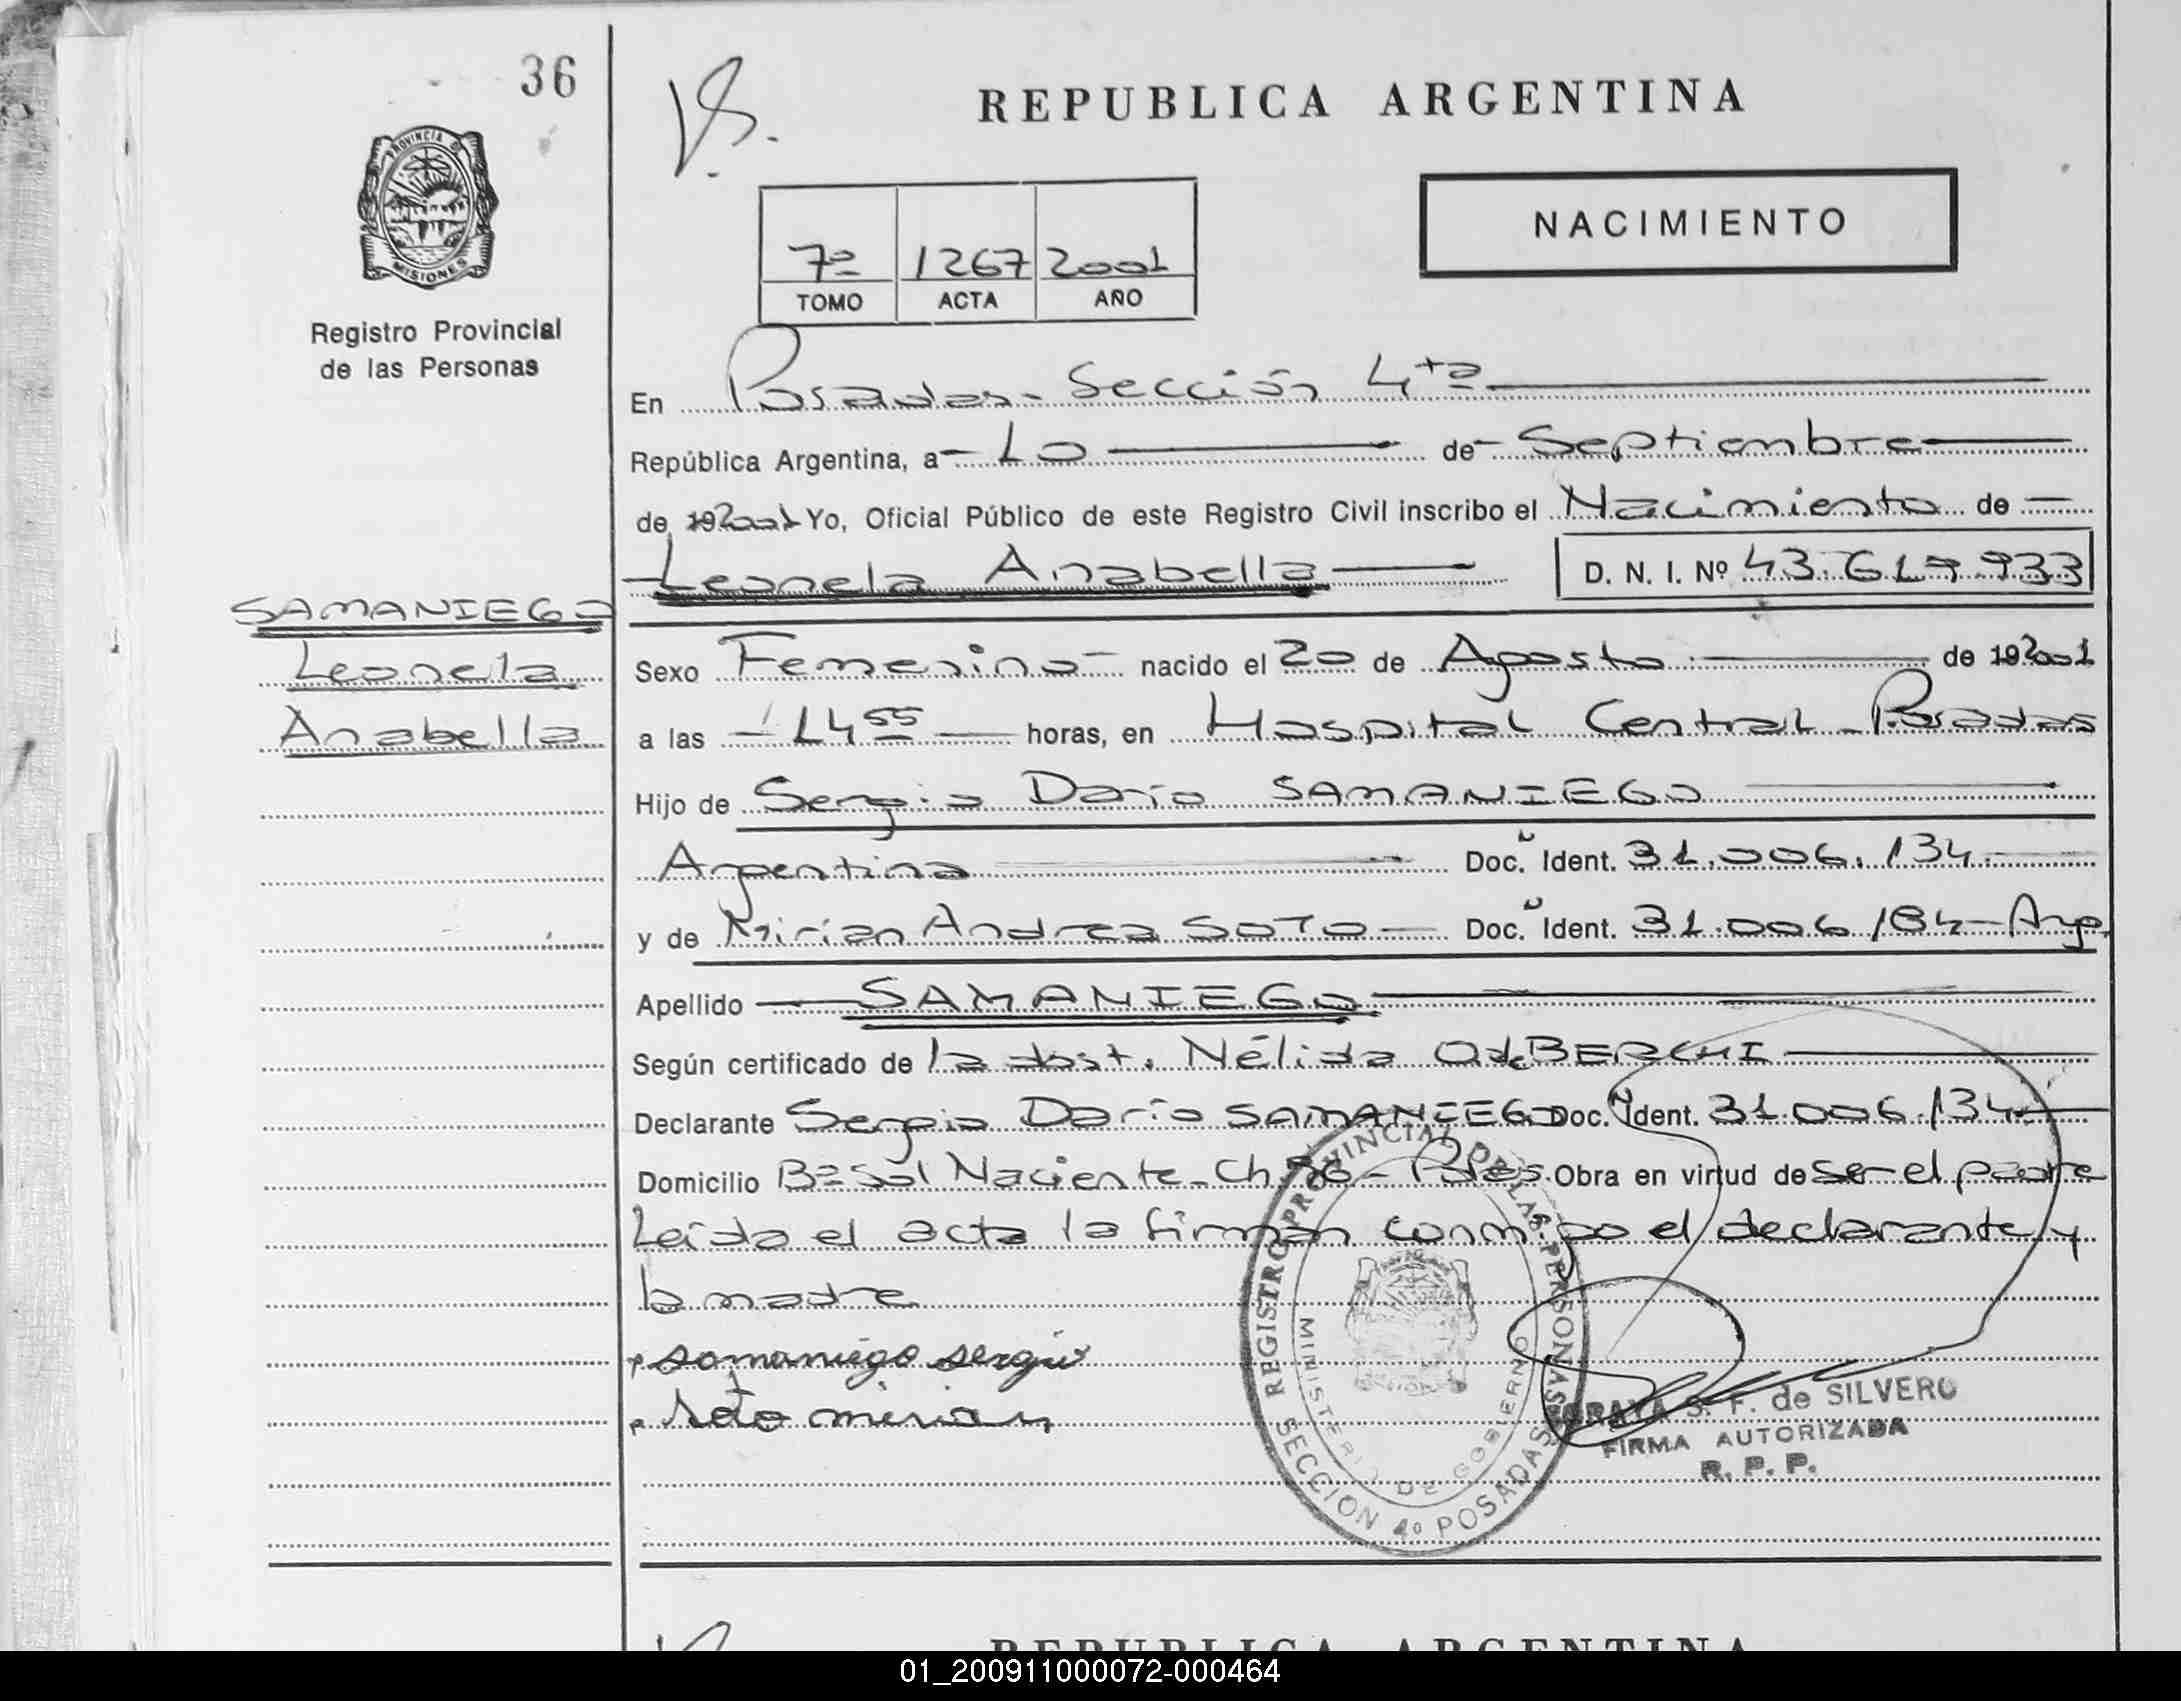 36
PROVINCIA DE
MISIONES
Registro Provincial
de las Personas
REPUBLICA ARGENTINA
NACIMIENTO
7º 1267 2001
TOMO ACTA AÑO
En Posadas - Sección 4ta
República Argentina, a 10 de Septiembre
de 192001 Yo, Oficial Público de este Registro Civil inscribo el Nacimiento de
Leonela Anabella D. N. I. Nº 43.619.933
SAMANIEGO
Leonela
Anabella
Sexo Femenino nacido el 20 de Agosto de 192001
a las 14 55 horas, en Hospital Central - Posadas
Hijo de Sergio Darío SAMANIEGO
Argentina Doc. Ident. 31.006.134
y de Mirian Andrea SOTO Doc. Ident. 31.006.184 - Arg.
Apellido SAMANIEGO
Según certificado de la obst. Nélida
Declarante Sergio Darío SAMANIEGO Doc. Ident. 31.006.134
Domicilio Bº Sol Naciente - Ch. - Pdas. Obra en virtud de ser el padre
Leída el acta la firman conmigo el declarante y
la madre
samaniego sergio
Soto mirian
REGISTRO PROVINCIAL DE LAS PERSONAS
MINISTERIO DE GOBIERNO
SECCION 4º POSADAS
S. F. de SILVERO
FIRMA AUTORIZADA
R. P. P.
REPUBLICA ARGENTINA
01_200911000072-000464